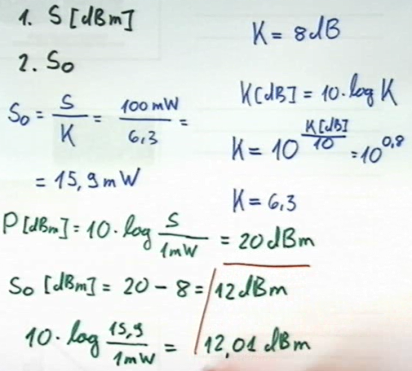 1. S [dBm]
2. So
So = S/K = 100mW/6,3 =
= 15,9 mW
K = 8dB
K[dB] = 10·log K
K = 10^(K[dB]/10) = 10^0,8
K = 6,3
P[dBm] = 10·log S/1mW = 20dBm
So [dBm] = 20 - 8 = 12dBm
10·log 15,9/1mW = 12,01 dBm